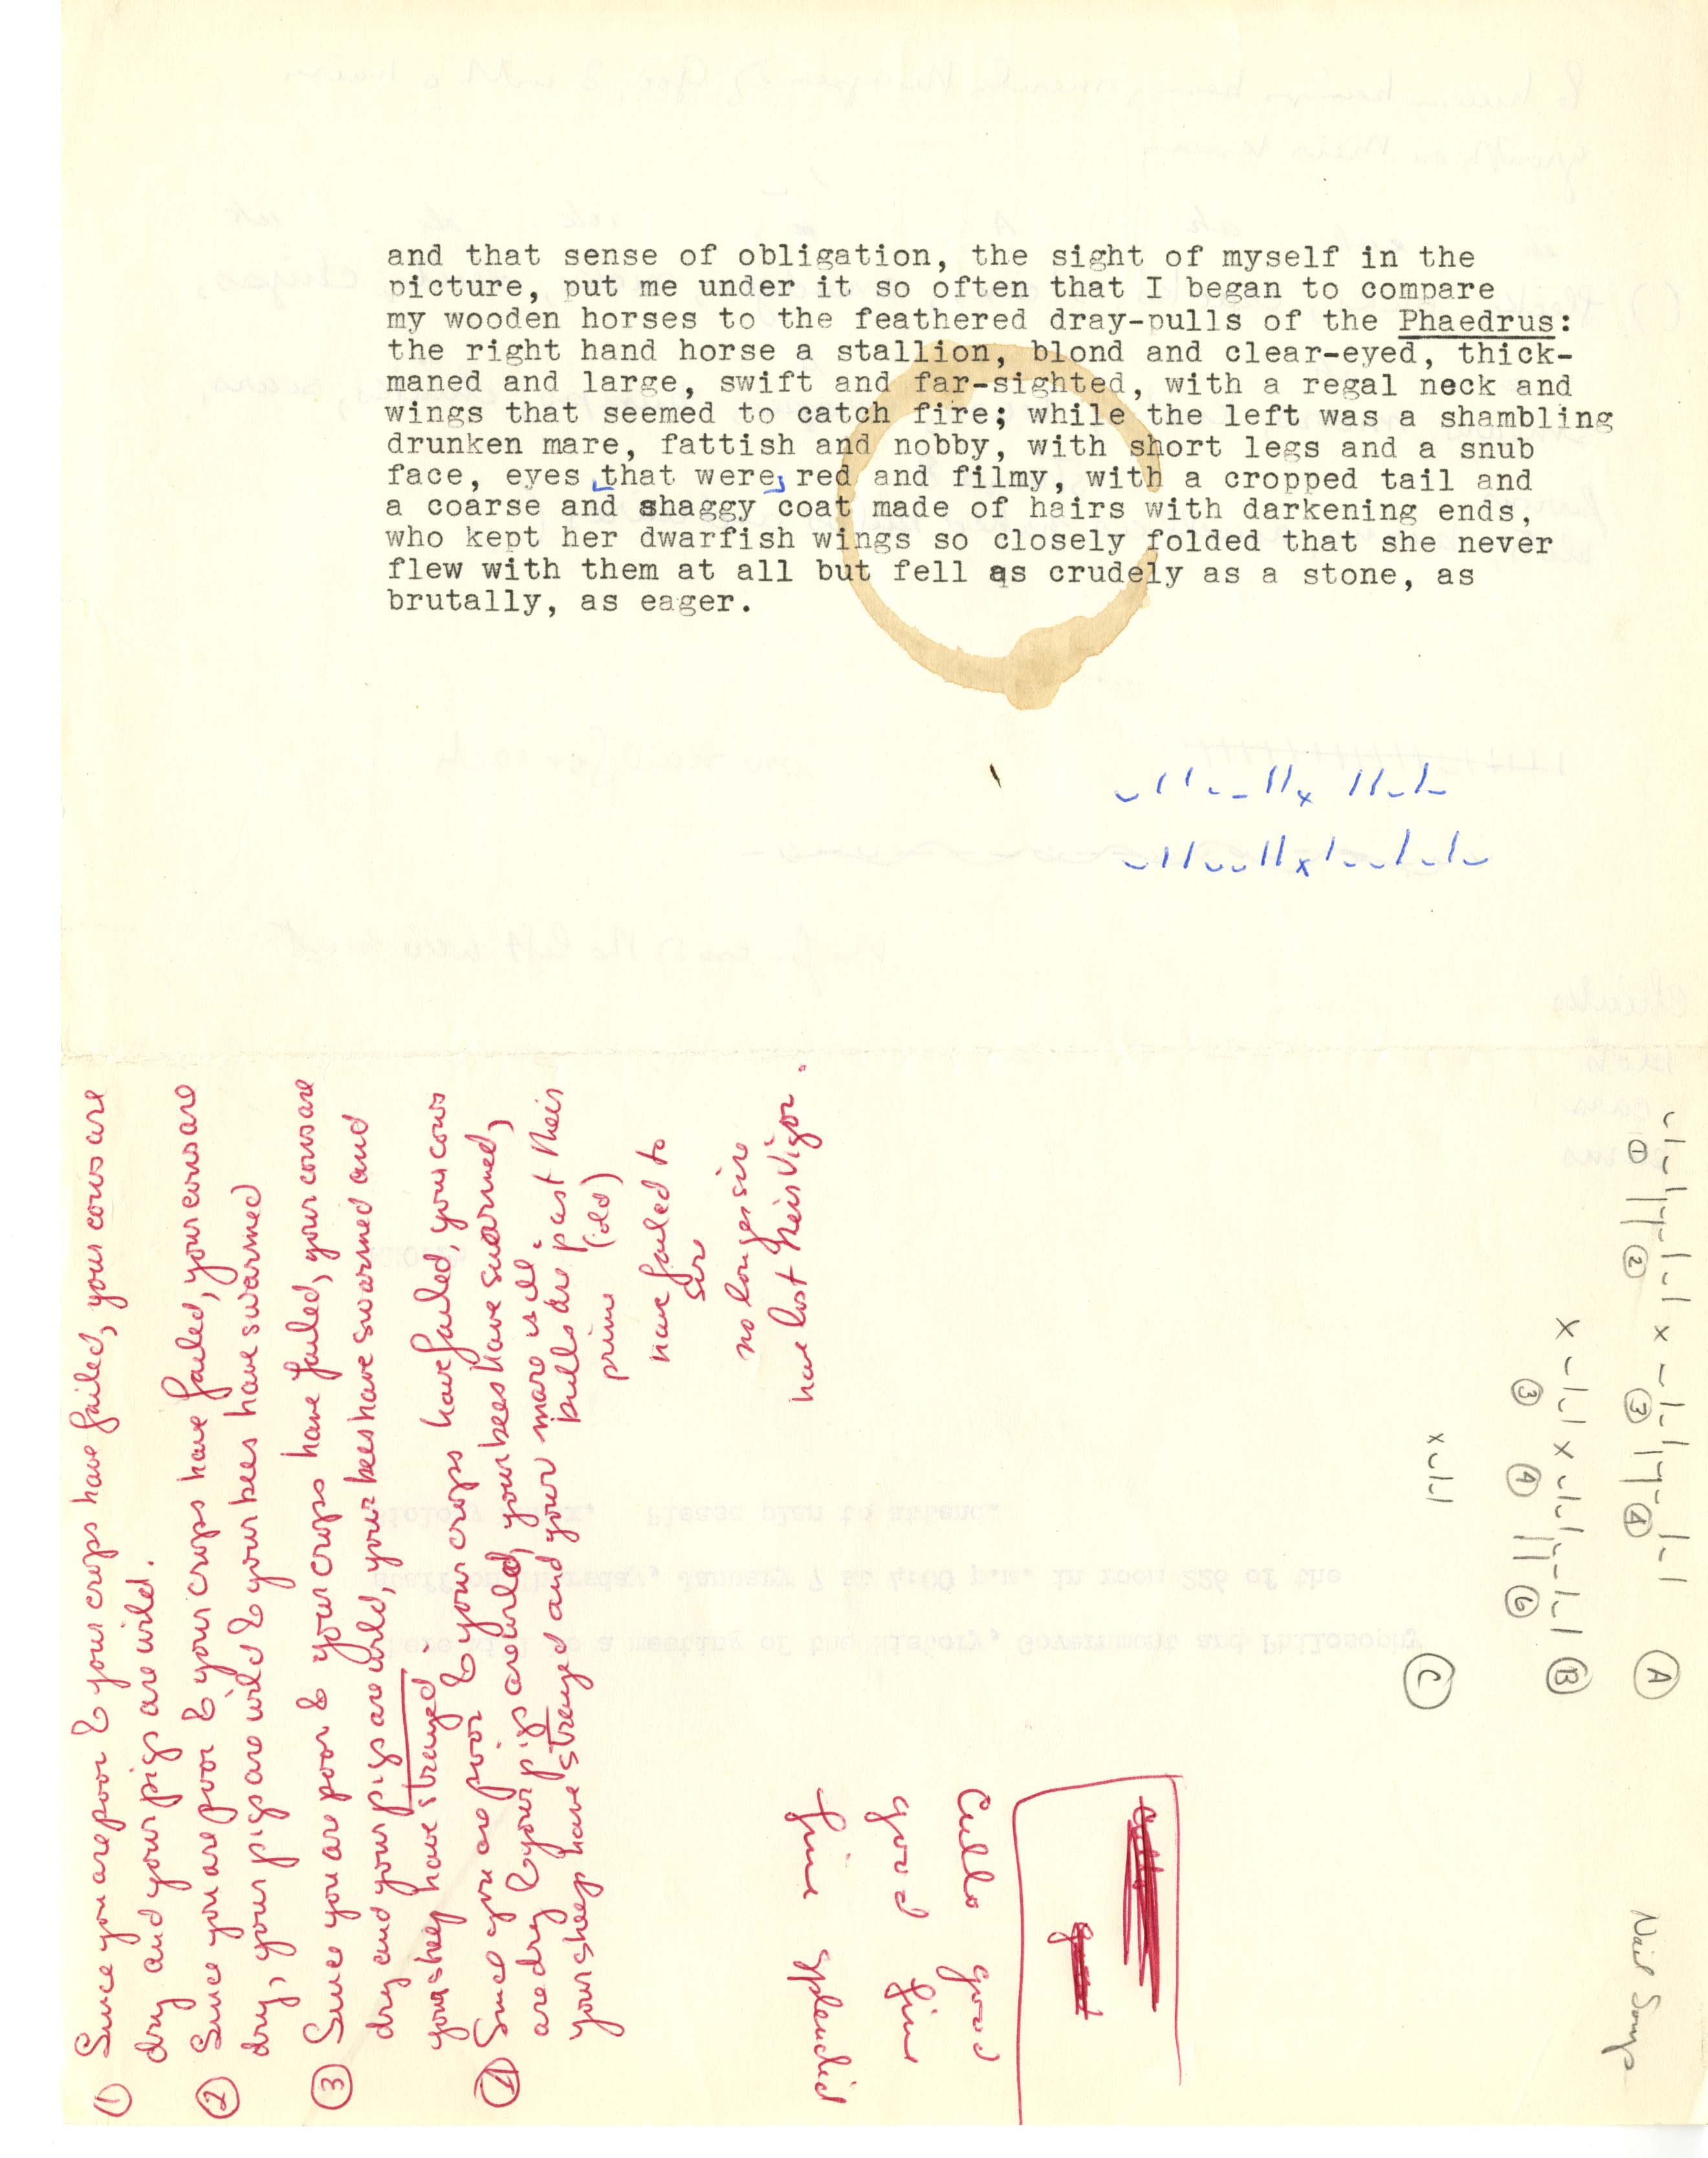 and that sense of obligation, the sight of myself in the
picture, put me under it so often that I began to compare
my wooden horses to the feathered dray-pulls of the Phaedrus:
the right hand horse a stallion, blond and clear-eyed, thick-
maned and large, swift and far-sighted, with a regal neck and
wings that seemed to catch fire; while the left was a shambling
drunken mare, fattish and nobby, with short legs and a snub
face, eyes that were red and filmy, with a cropped tail and
a coarse and shaggy coat made of hairs with darkening ends,
who kept her dwarfish wings so closely folded that she never
flew with them at all but fell as crudely as a stone, as
brutally, as eager.
① Since you are poor & your crops have failed, your cows are
dry and your pigs are wild.
② Since you are poor & your crops have failed, your cows are
dry, your pigs are wild & your bees have swarmed
③ Since you are poor & your crops have failed, your cows are
dry and your pigs are wild, your bees have swarmed and
your sheep have strayed.
④ Since you are poor & your crops have failed, your cows
are dry & your pigs are wild, your bees have swarmed,
your sheep have strayed and your mare is ill.
bulls are past their
prime (old)
have failed to
sire
no longer sire
have lost their vigor.
fine splendid
good fine
Cullo good
① ② x ③ ④ Ⓐ
x ③ x ④ ⑥ Ⓑ
x Ⓒ